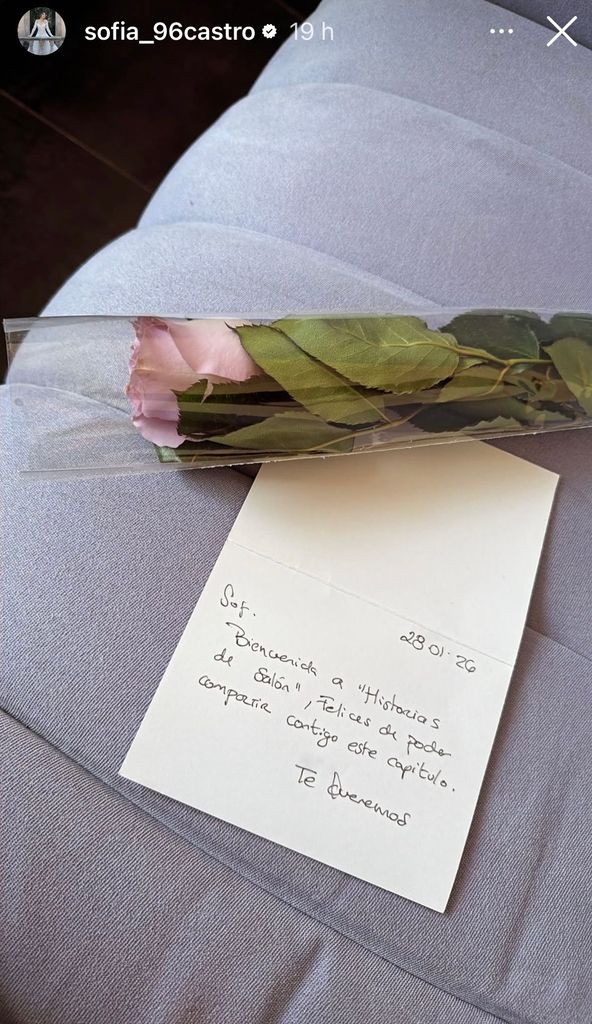 sofia_96castro 19 h
Sof.
28·01·26
Bienvenida a "Historias
de Salón", Felices de poder
compartir contigo este capitulo.
Te Queremos